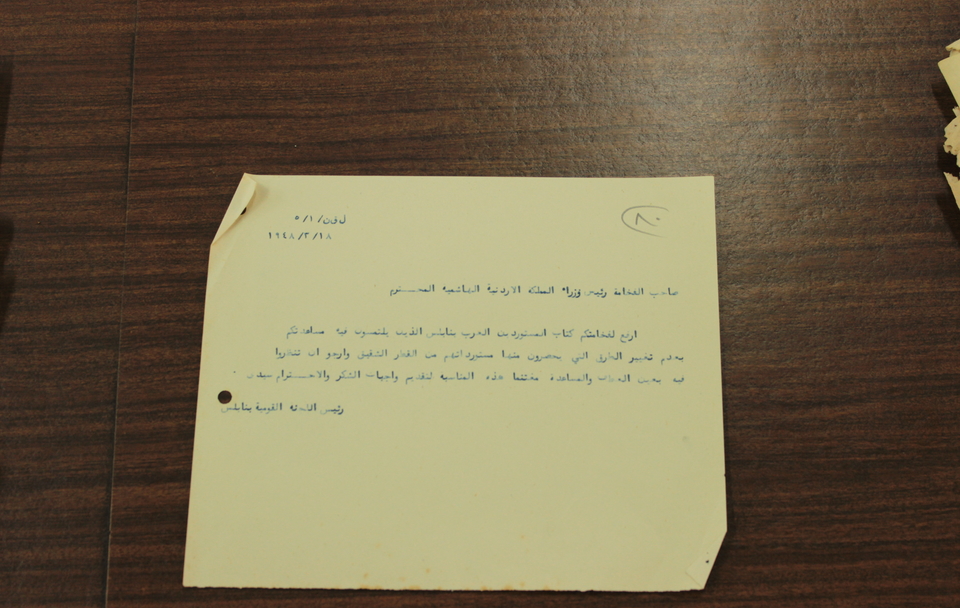 ل ق ن/ ١/ ٥
١٩٤٨/٣/١٨
٨٠
صاحب الفخامة رئيس وزراء المملكة الاردنية الهاشمية المحتــــرم
ارفع لفخامتكم كتاب المستوردين العرب بنابلس الذين يلتمسون فيه مساعدتكم
بعدم تغيير الطرق التي يحضرون منها مستورداتهم من القطر الشقيق وارجو ان تنظروا
فيه بعين العطف والمساعدة مغتنما هذه المناسبة لتقديم واجبات الشكر والاحتـــرام سيدي
رئيس اللجنة القومية بنابلس